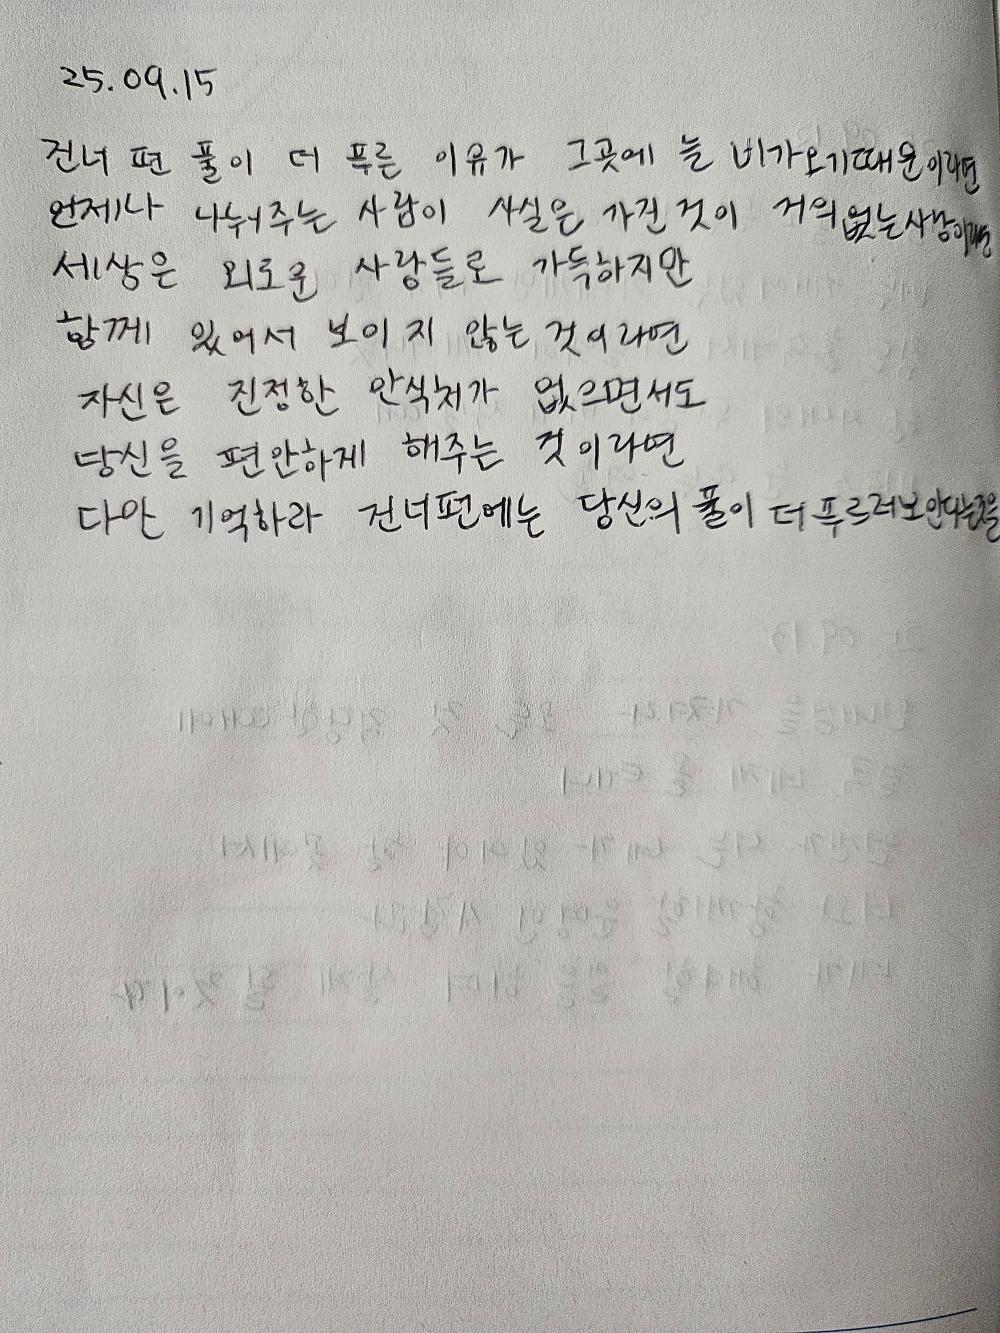 25.09.15
건너 편 풀이 더 푸른 이유가 그곳에 늘 비가오기때문이라면
언제나 나눠주는 사람이 사실은 가진 것이 거의없는사람이라면
세상은 외로운 사람들로 가득하지만
함께 있어서 보이지 않는 것이라면
자신은 진정한 안식처가 없으면서도
당신을 편안하게 해주는 것이라면
다만 기억하라 건너편에는 당신의 풀이 더푸르러보인다는것을